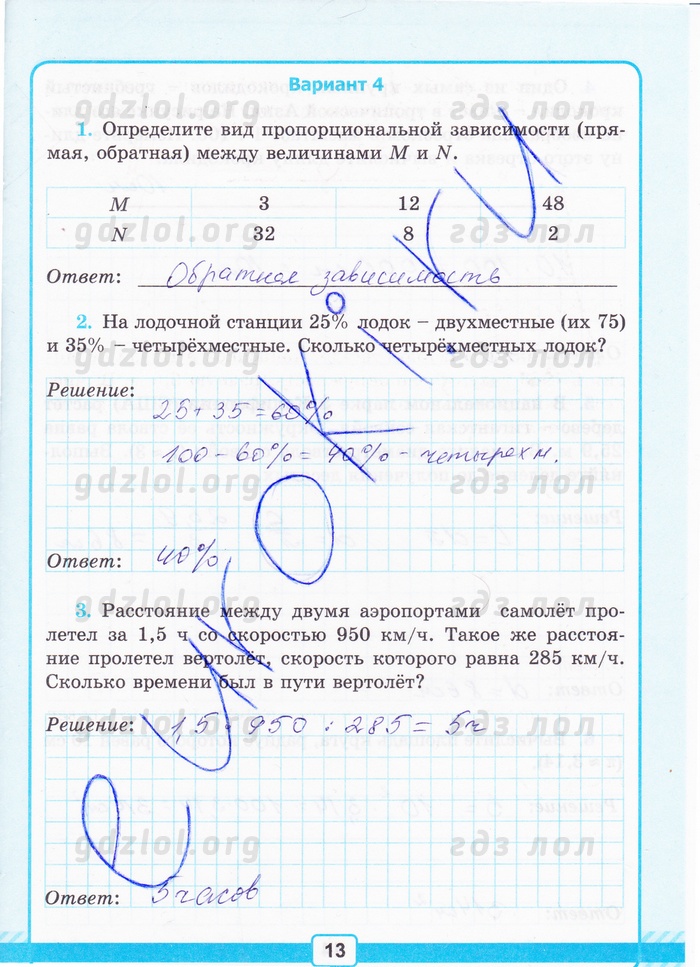 Вариант 4
gdzlol.org гдз лол
1. Определите вид пропорциональной зависимости (пря-
мая, обратная) между величинами M и N.
M 3 12 48
N 32 8 2
gdzlol.org гдз лол
Ответ: Обратная зависимость
2. На лодочной станции 25% лодок – двухместные (их 75)
и 35% – четырёхместные. Сколько четырёхместных лодок?
gdzlol.org гдз лол
Решение:
25 + 35 = 60%
100 - 60% = 40% - четырехм.
gdzlol.org гдз лол
Ответ: 40%
3. Расстояние между двумя аэропортами самолёт про-
gdzlol.org гдз лол
летел за 1,5 ч со скоростью 950 км/ч. Такое же расстоя-
ние пролетел вертолёт, скорость которого равна 285 км/ч.
Сколько времени был в пути вертолёт?
Решение: 1,5 · 950 : 285 = 5ч
gdzlol.org гдз лол
gdzlol.org гдз лол
Ответ: 5 часов
13